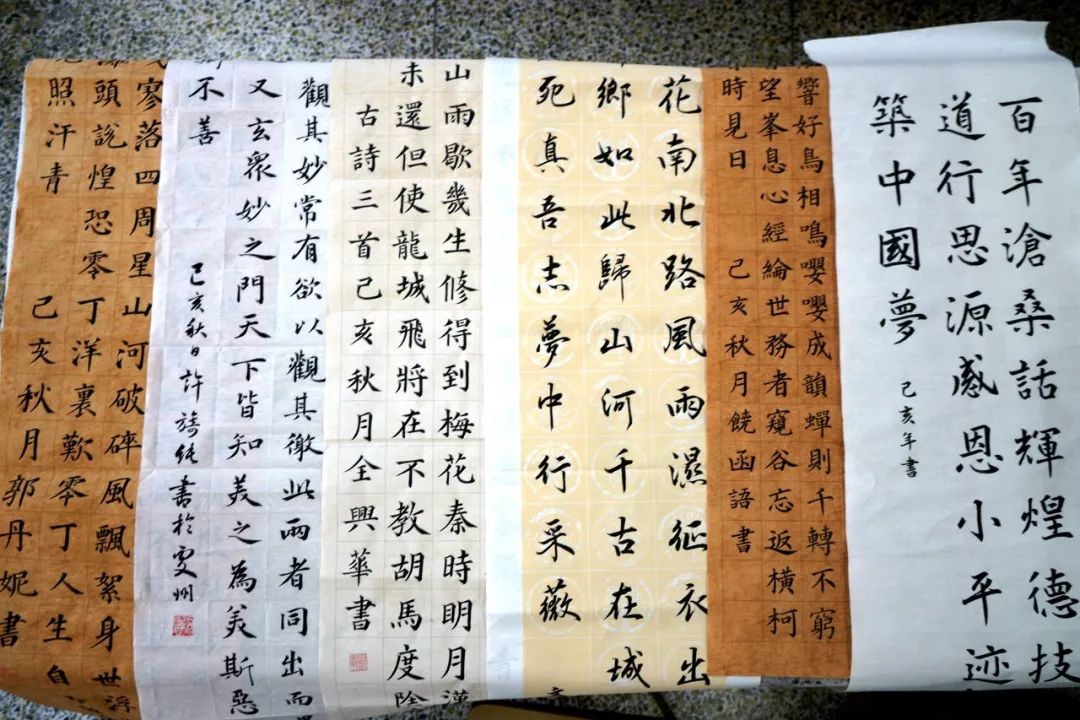 百年滄桑話輝煌德技
道行思源感恩小平迹
築中國夢 己亥年書
響好鳥相鳴嚶嚶成韻蟬則千轉不窮
望峯息心經綸世務者窺谷忘返橫柯
時見日 己亥秋月饒函語書
花南北路風雨濕征衣出
鄉如此歸山河千古在城
死真吾志夢中行采薇
山雨歇幾生修得到梅花秦時明月漢
未還但使龍城飛將在不教胡馬度陰
古詩三首己亥秋月全興華書
觀其妙常有欲以觀其徼此兩者同出而
又玄眾妙之門天下皆知美之為美斯惡
不善
己亥秋日許書於
寥落四周星山河破碎風飄絮身世浮
頭說惶恐零丁洋裏歎零丁人生自
照汗青 己亥秋月郭丹妮書